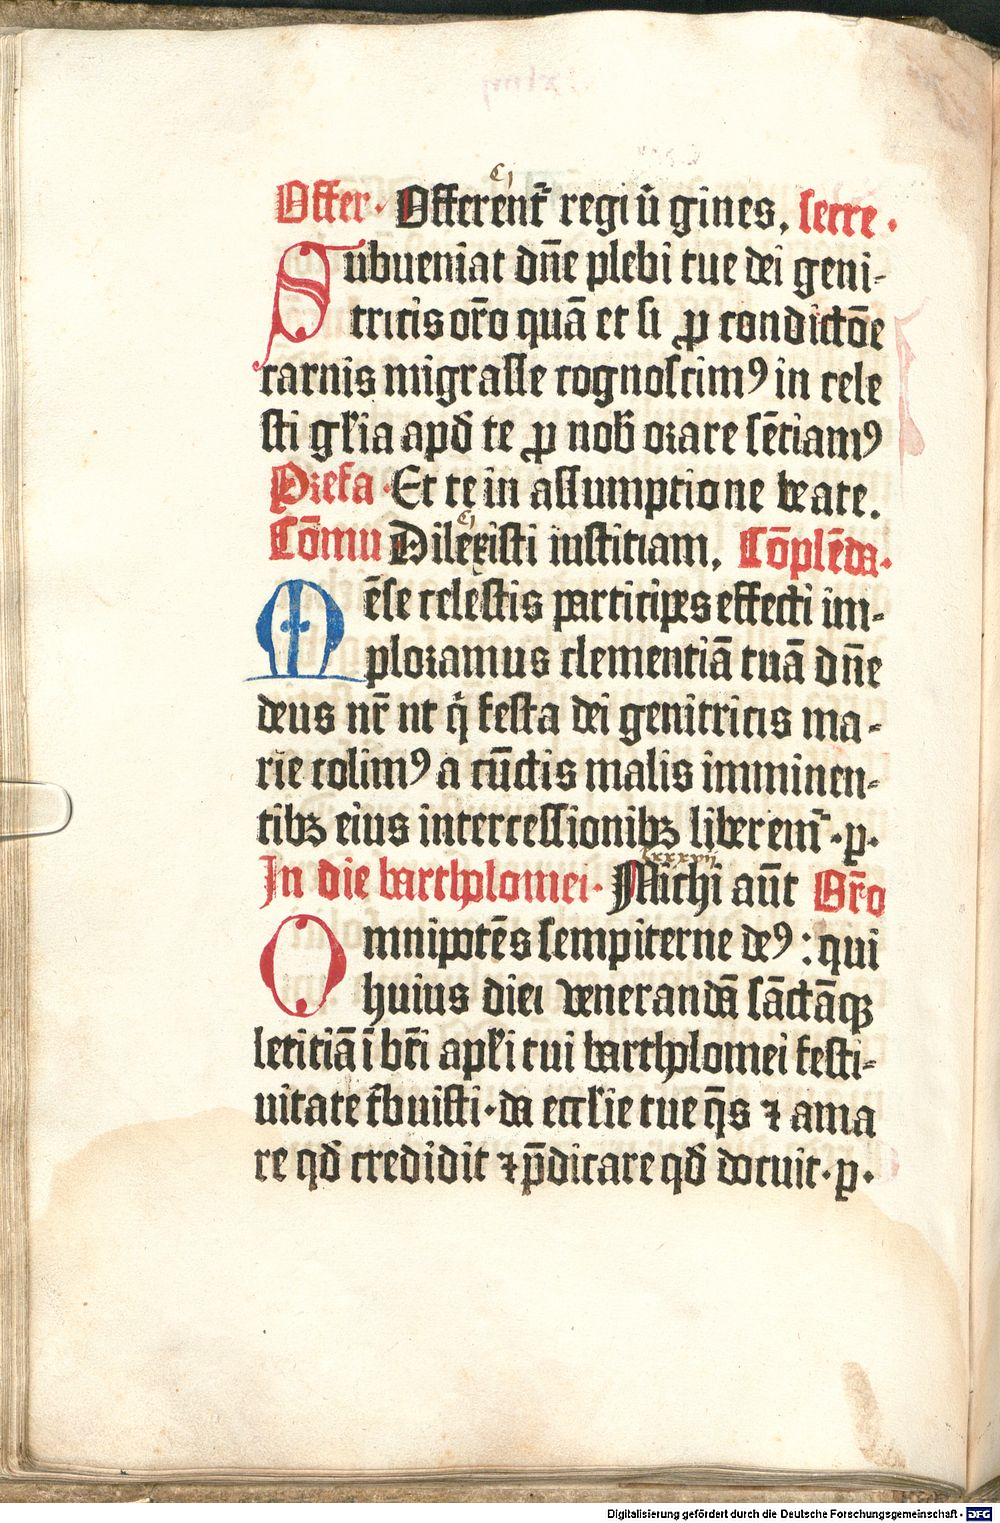 cj
Offer· Offerent̄ regi v̄gines. secre·
Subueniat dn̄e plebi tue dei geni-
tricis or̄o quā et si ꝓ condictōe
carnis migrasse cognoscimꝰ in cele
sti gl̄ia apd̄ te ꝓ nob̄ orare sētiamꝰ
Prefa· Et te in assumptione beate.
cj
Cōmu Dilexisti iusticiam. Cōplēda·
Mēse celestis participes effecti im-
ploramus clementiā tuā dn̄e
deus nr̄ vt q̄ festa dei genitricis ma-
rie colimꝰ a cūctis malis imminen-
tibꝫ eius intercessionibꝫ liberem̄·p·
lxxxvij
In die bartholomei· Michi aūt Or̄o
Omnipotēs sempiterne deꝰ: qui
huius diei venerandā sāctāqꝫ
leticiā ī bt̄i apl̄i tui bartholomei festi-
uitate t̄buisti·da eccl̄ie tue q̄s ⁊ ama
re qd̄ credidit ⁊ p̄dicare qd̄ docuit·p·
Digitalisierung gefördert durch die Deutsche Forschungsgemeinschaft - DFG